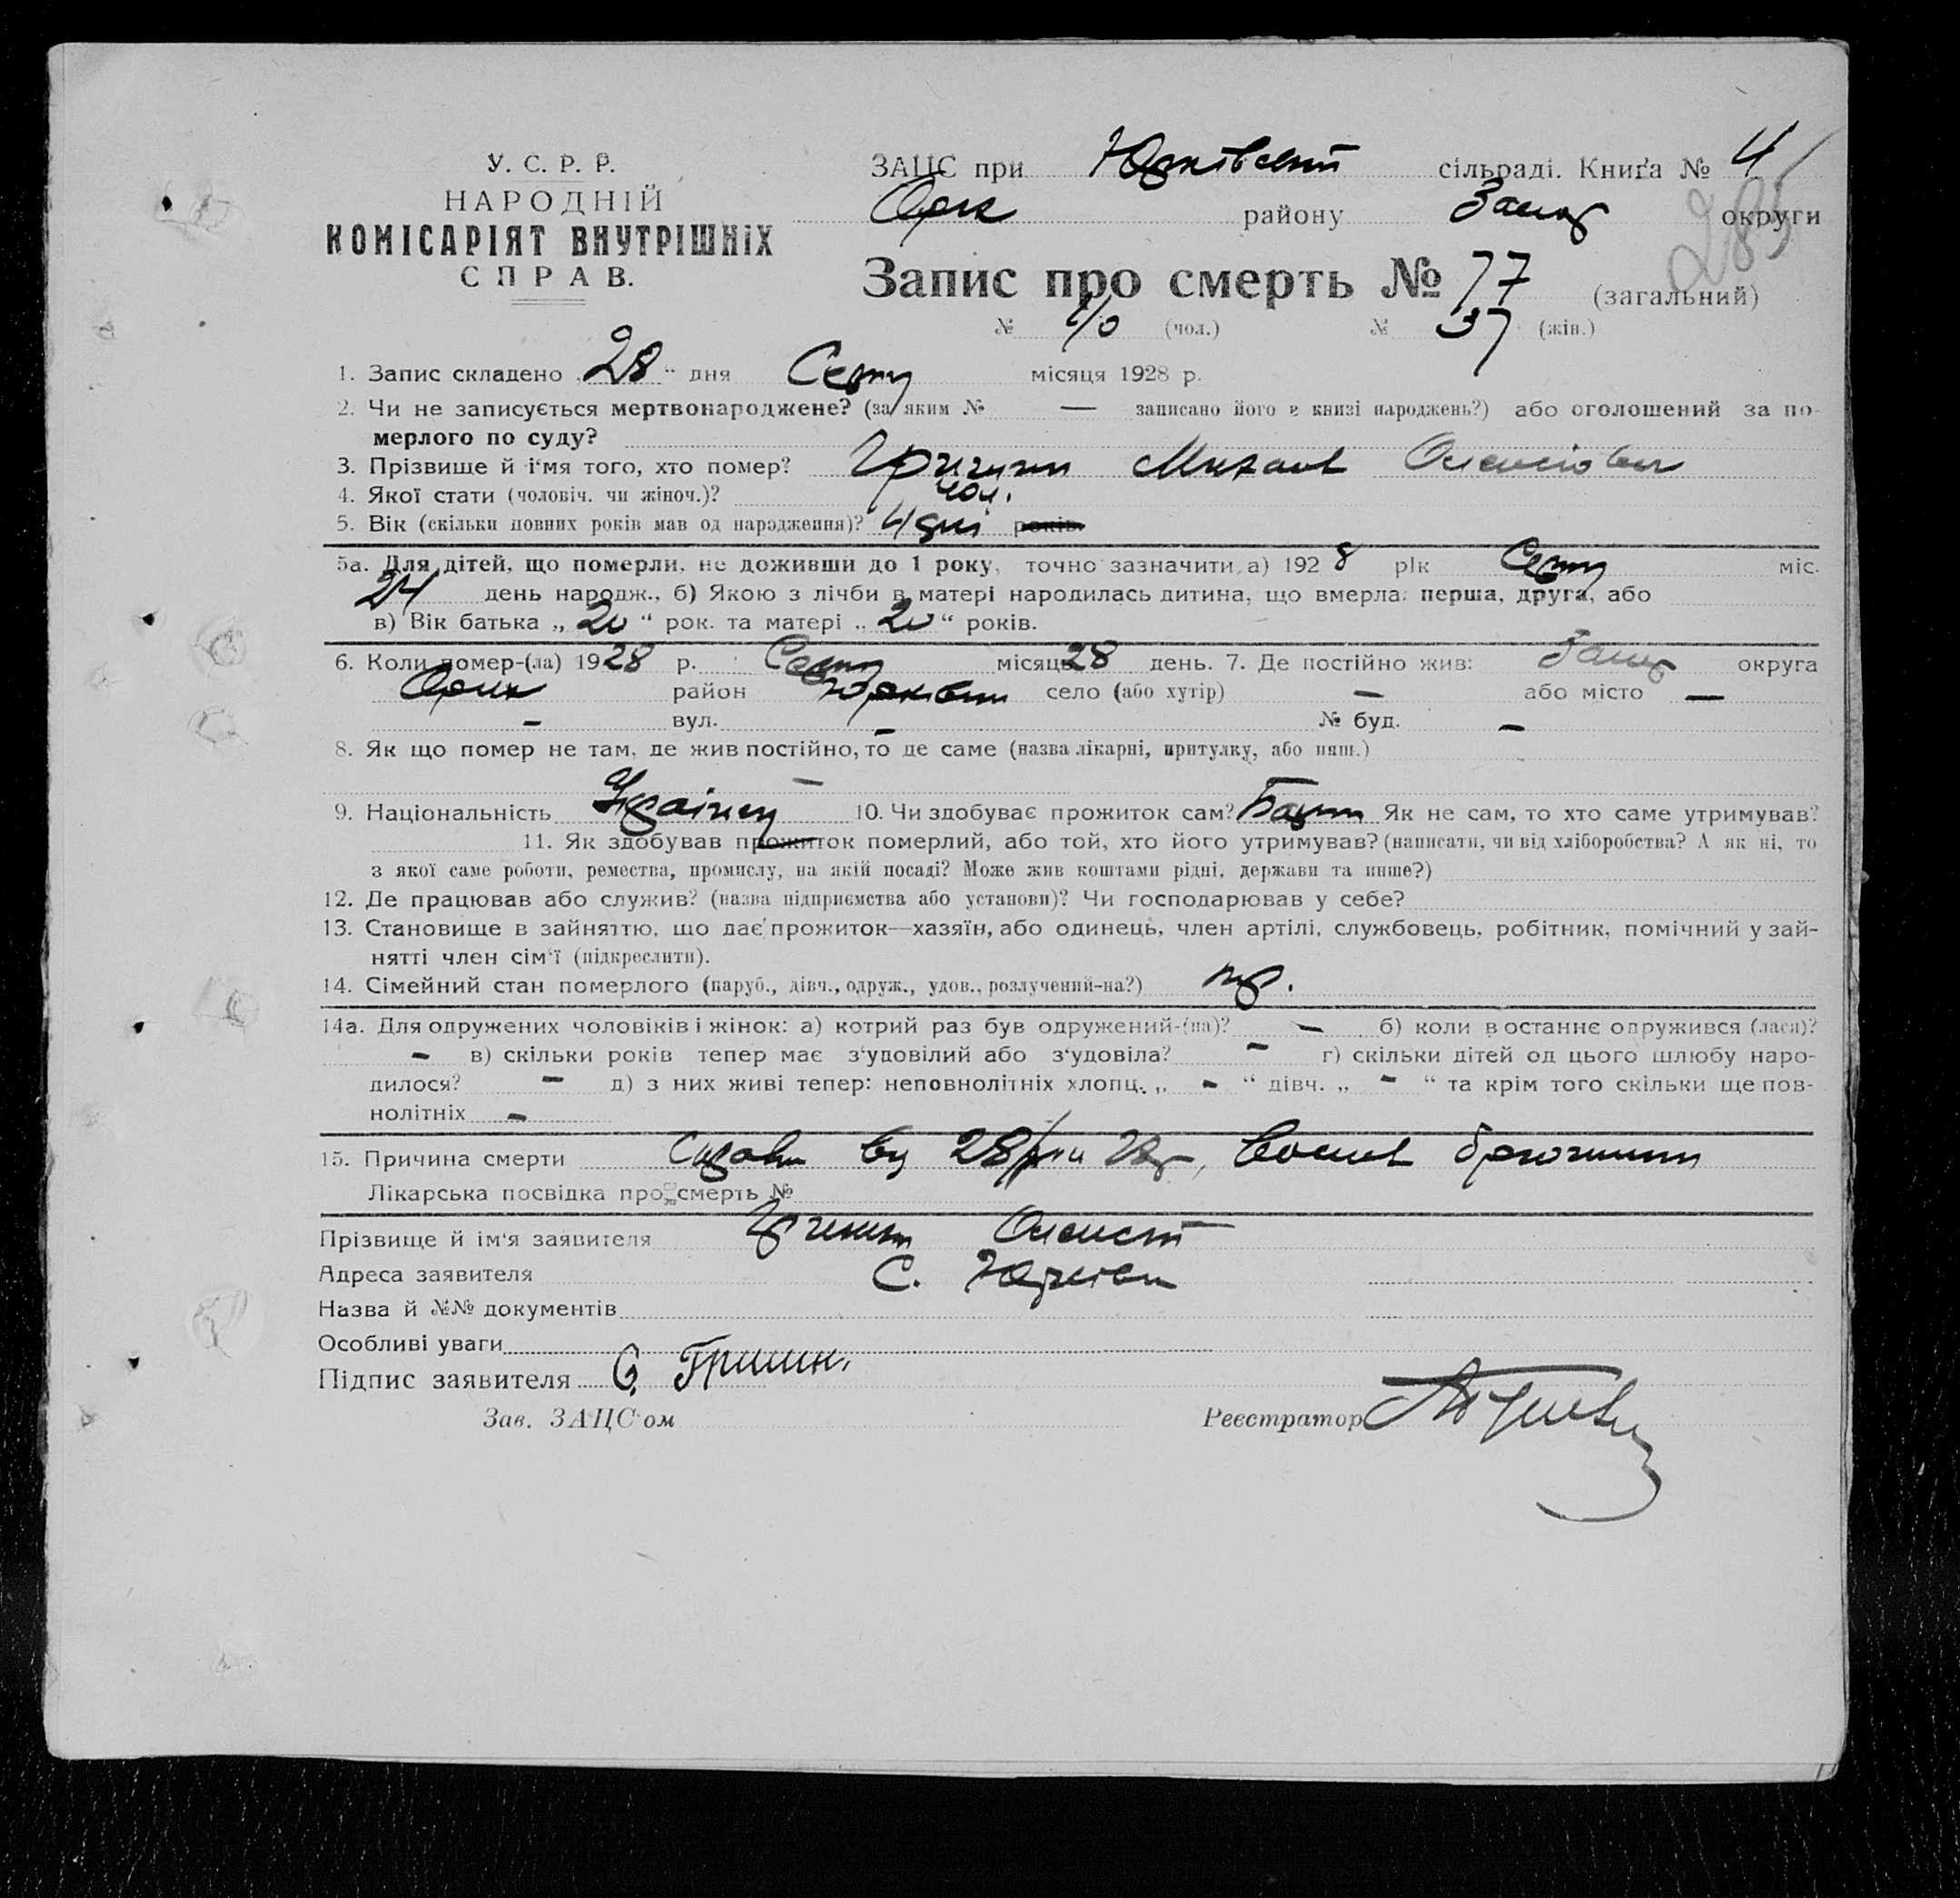 У. С. Р. Р.
НАРОДНІЙ
КОМІСАРІЯТ ВНУТРІШНІХ
СПРАВ.
ЗАЦС при Юрківській сільраді. Книґа № 4
Оріх району Запор округи
285
Запис про смерть № 77 (загальний)
№ 40 (чол.) № 37 (жін.)
1. Запис складено „28“ дня Серпу місяця 1928 р.
2. Чи не записується мертвонароджене? (за яким № — записано його в книзі народжень?) або оголошений за по-
мерлого по суду?
3. Прізвище й ім'я того, хто помер? Михаил Олексієвич
4. Якої стати (чоловіч. чи жіноч.)? чол.
5. Вік (скільки повних років мав од народження)? 4 дні років.
5а. Для дітей, що померли, не доживши до 1 року, точно зазначити, а) 1928 рік Серпу міс.
24 день народж., б) Якою з лічби в матері народилась дитина, що вмерла: перша, друга, або
в) Вік батька „20“ рок. та матері „20“ років.
6. Коли помер-(ла) 1928 р. Серпу місяця 28 день. 7. Де постійно жив: Запор округа
Оріх район Юрківка село (або хутір) — або місто —
— вул. — № буд. —
8. Як що помер не там, де жив постійно, то де саме (назва лікарні, притулку, або инш.)
—
9. Національність Україн 10. Чи здобуває прожиток сам? Батьки Як не сам, то хто саме утримував?
11. Як здобував прожиток померлий, або той, хто його утримував? (написати, чи від хліборобства? А як ні, то
з якої саме роботи, ремества, промислу, на якій посаді? Може жив коштами рідні, держави та инше?)
12. Де працював або служив? (назва підприємства або установи)? Чи господарював у себе?
13. Становище в зайняттю, що дає прожиток—хазяїн, або одинець, член артілі, службовець, робітник, помічний у зай-
нятті член сім'ї (підкреслити).
14. Сімейний стан померлого (паруб., дівч., одруж., удов., розлучений-на?)
14а. Для одружених чоловіків і жінок: а) котрий раз був одружений-(на)? — б) коли в останнє одружився (лася)?
— в) скільки років тепер має з'удовілий або з'удовіла? — г) скільки дітей од цього шлюбу наро-
дилося? — д) з них живі тепер: неповнолітніх хлопц. „ — “ дівч. „ — “ та крім того скільки ще пов-
нолітніх —
15. Причина смерти 28/VIII 28р,
Лікарська посвідка про смерть №
Прізвище й ім'я заявителя Олексій
Адреса заявителя С. Юрківка
Назва й №№ документів
Особливі уваги
Підпис заявителя О. Гришин.
Зав. ЗАЦС'ом Реєстратор